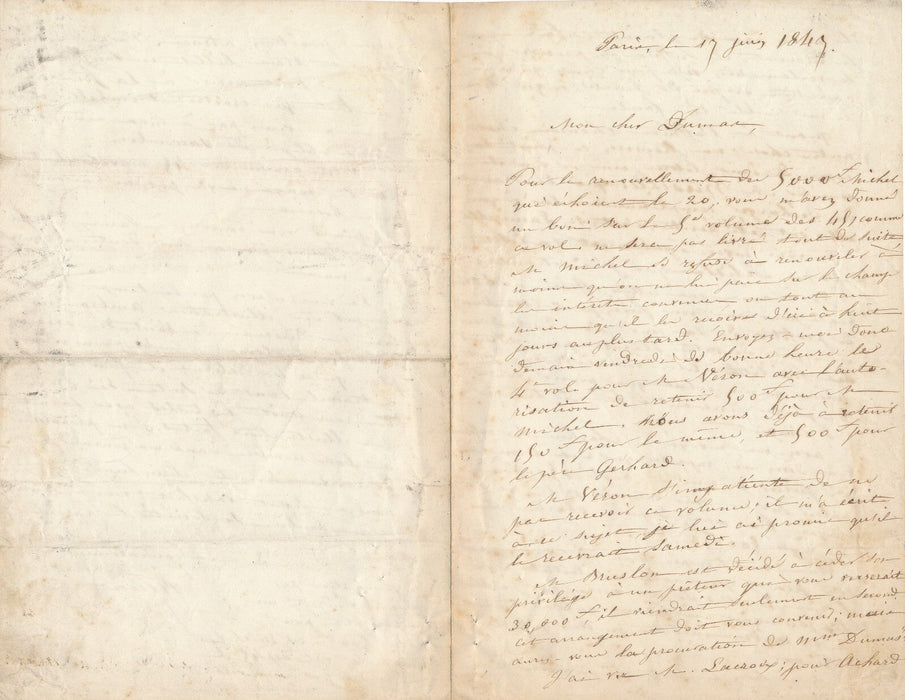 Paris, le 17 juin 1847.
Mon cher Dumas,
Pour le renouvellement des 5000 f Michel
qui échoient le 20, vous m'avez donné
un bon sur le 5e volume des 45; comme
ce vol. ne sera pas livré tout de suite
M Michel se refuse à renouveler à
moins qu'on ne lui paie sur le champ
les intérêts convenus ou tout au
moins qu'il les reçoive d'ici à huit
jours au plus tard. Envoyez-moi donc
demain vendredi de bonne heure le
4e vol. pour M Véron avec l'auto-
risation de retenir 500 f pour M
Michel. Nous avons déjà à retenir
150 f pour le même, et 500 f pour
le père Gerhard.
M Véron s'impatiente de ne
pas recevoir ce volume; il m'a écrit
à ce sujet, je lui ai promis qu'il
le recevrait samedi.
M Bruslon est décidé à céder son
privilège à un prêteur qui vous verserait
30,000 f, il viendrait seulement en second
cet arrangement doit vous convenir; mais
aurez-vous la procuration de Mme Dumas?
J'ai vu M. Lacroix; pour Achard